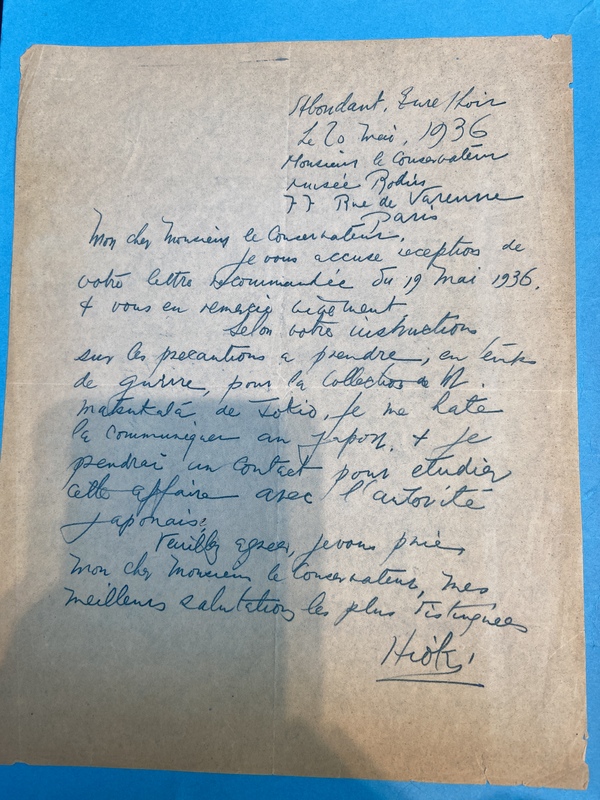 Abondant, Eure & Loir
Le 20 Mai, 1936
Monsieur le Conservateur
musée Rodin
77 Rue de Varenne
Paris
Mon cher Monsieur le Conservateur,
je vous accuse reception de
votre lettre recommandée du 19 Mai 1936,
& vous en remercie
Selon votre instructions
sur les precautions a prendre, en
de guerre, pour la Collection de M.
Matsukata de Tokio, je me hate
la communiquer au Japon, & je
pendrai un contact pour etudier
cette affaire avec l'autorité
Japonais.
Veuillez agreer, je vous pries
Mon cher Monsieur le Conservateur, mes
meilleurs salutations les plus distinguées
Hioki